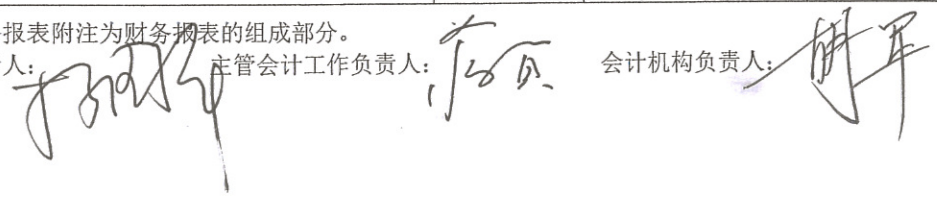 报表附注为财务报表的组成部分。
人： 主管会计工作负责人： 会计机构负责人：